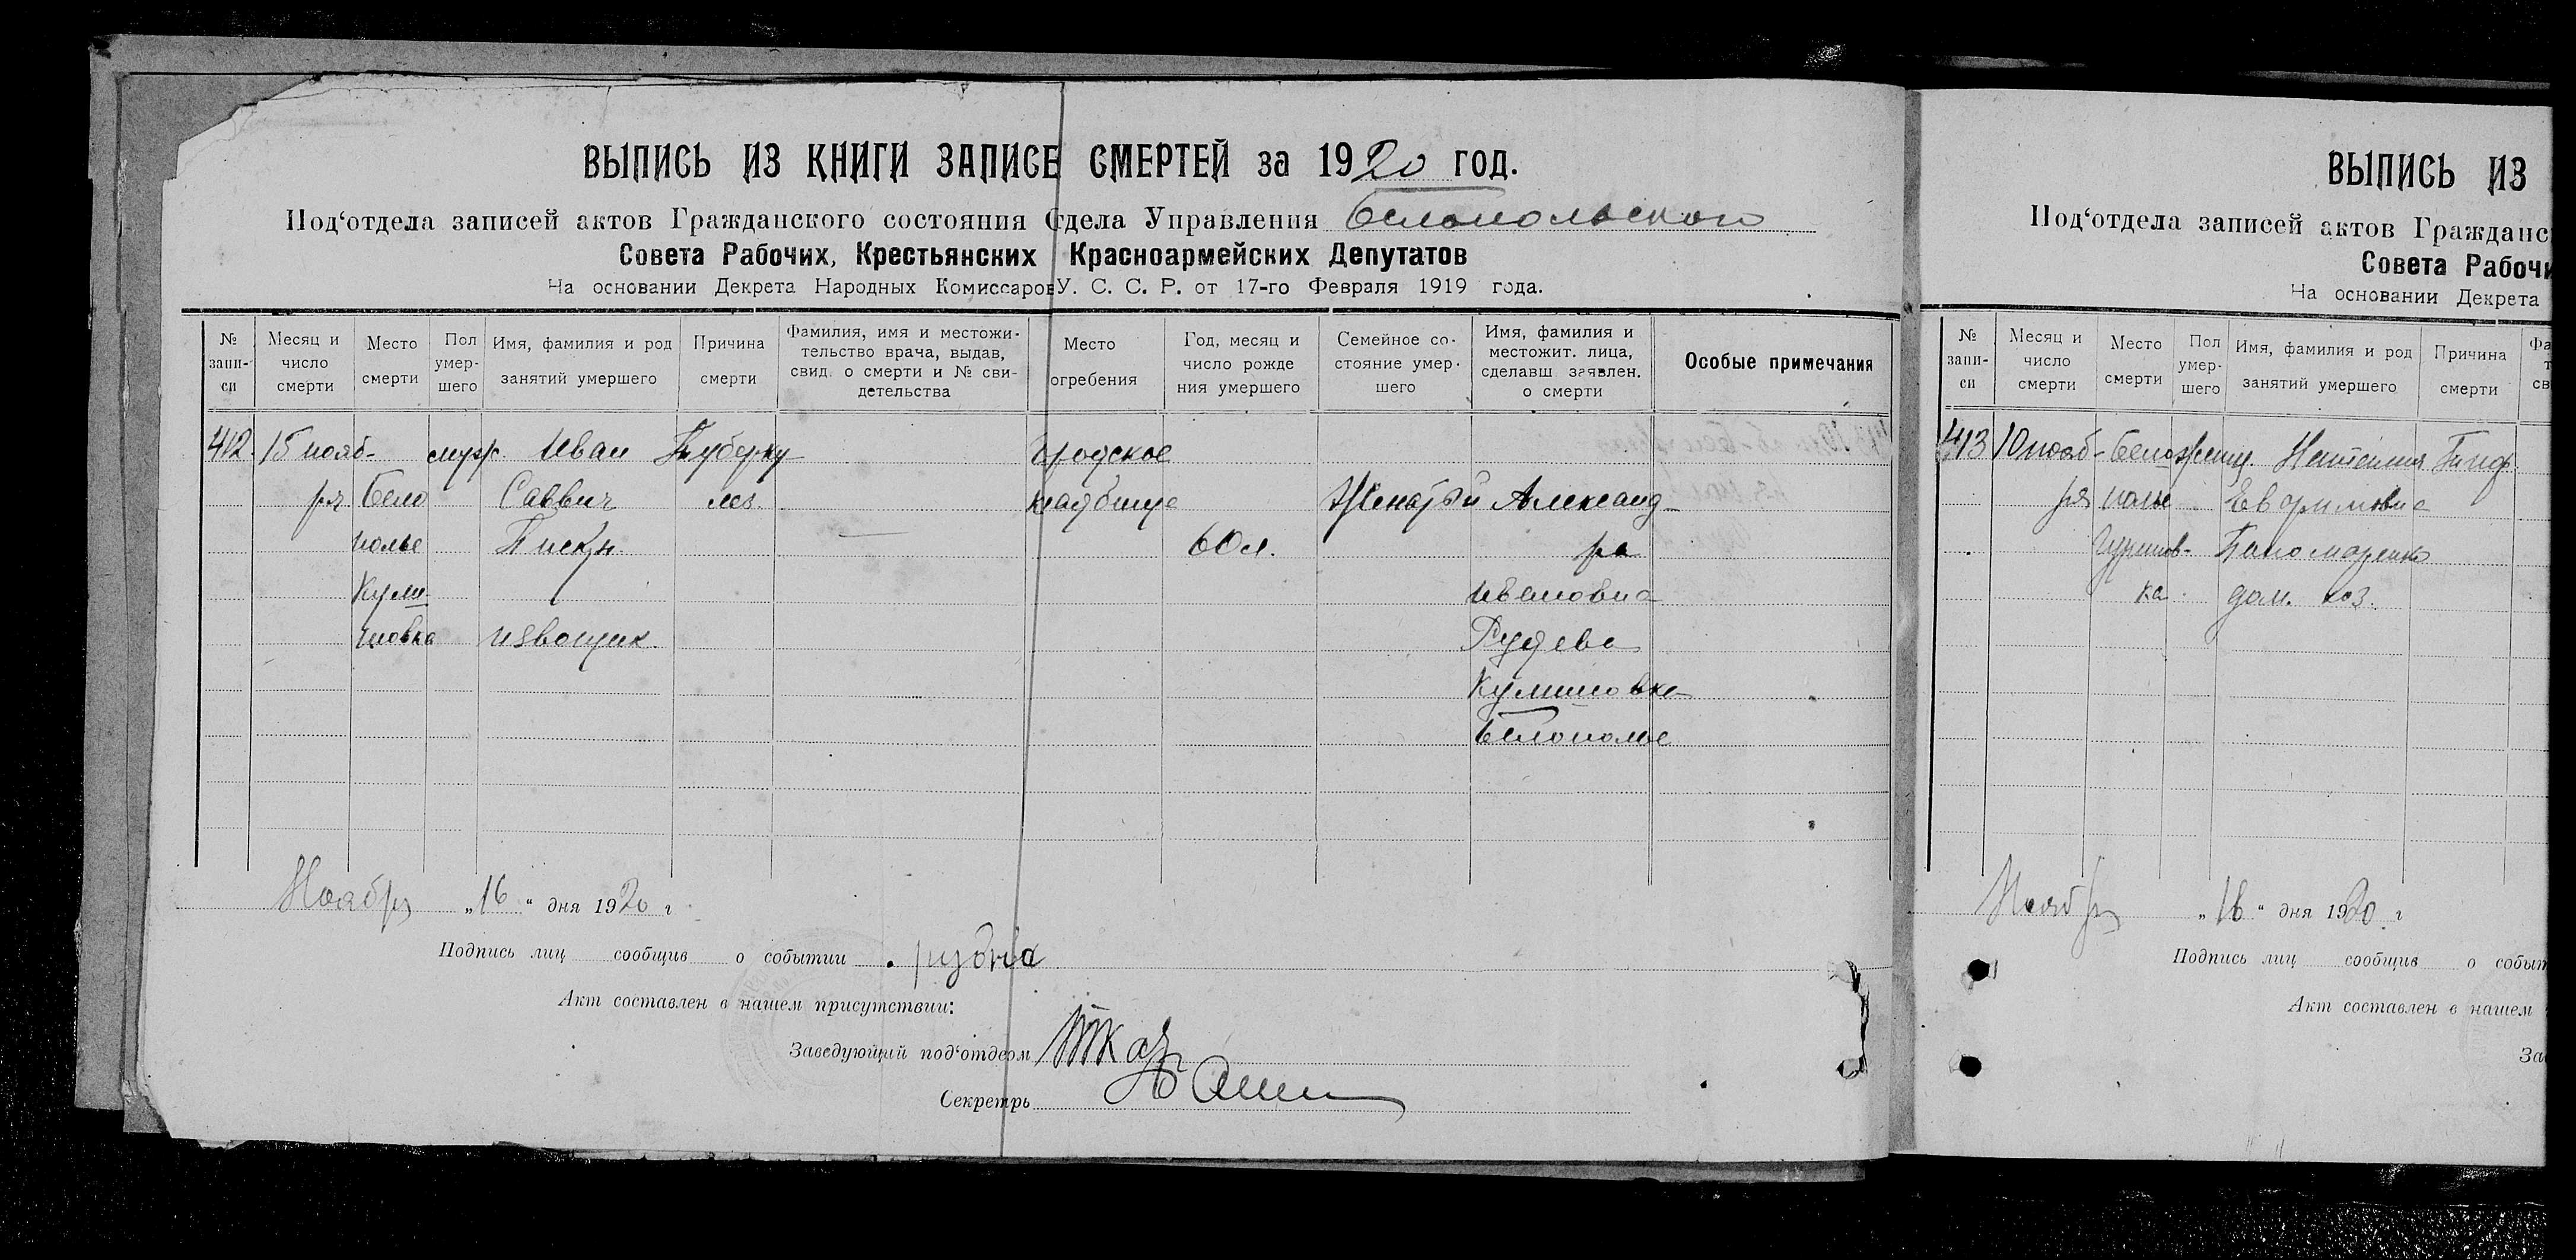 ВЫПИСЬ ИЗ КНИГИ ЗАПИСЕ СМЕРТЕЙ за 1920 ГОД.
Под‘отдела записей актов Гражданского состояния Отдела Управления Белопольского
Совета Рабочих, Крестьянских Красноармейских Депутатов
На основании Декрета Народных Комиссаров У. С. С. Р. от 17-го Февраля 1919 года.
№ запи-си
Месяц и число смерти
Место смерти
Пол умер-шего
Имя, фамилия и род занятий умершего
Причина смерти
Фамилия, имя и местожи-тельство врача, выдав, свид. о смерти и № сви-детельства
Место огребения
Год, месяц и число рожде ния умершего
Семейное со-стояние умер-шего
Имя, фамилия и местожит. лица, сделавш заявлен. о смерти
Особые примечания
412. 15 нояб- муж. Иван Туберку- городское
ря Бело Саввич лез. кладбище Женатый Александ-
полье 60 л. ра
Кули- Ивановна
човка извощик.
Белополье
Ноября „16“ дня 1920 г
Подпись лиц сообщив о событии
Акт составлен в нашем присутствии:
Заведующий под‘отдеом Ткач
Секретрь
ВЫПИСЬ ИЗ
Под‘отдела записей актов Гражданс
Совета Рабочи
На основании Декрета
№ запи-си
Месяц и число смерти
Место смерти
Пол умер-шего
Имя, фамилия и род занятий умершего
Причина смерти
413 10 нояб- Бело женщ. Тиф.
ря полье Евфимовна
Пономаренко
ка дом. хоз.
Ноября „16“ дня 1920 г
Подпись лиц сообщив о событ
Акт составлен в нашем
За